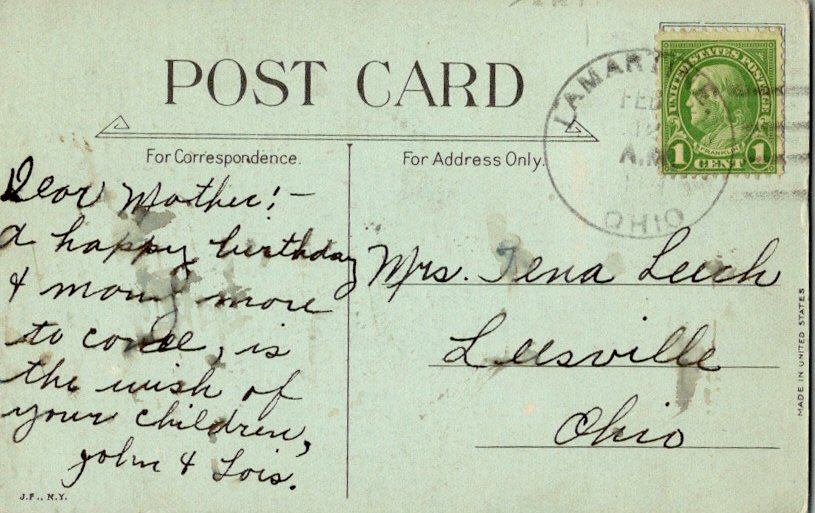 POST CARD
For Correspondence.
For Address Only.
UNITED STATES POSTAGE
FRANKLIN
1 CENT 1
LAMART
FEB
A.M.
OHIO
Dear Mother!—
a happy birthday
& many more
to come, is
the wish of
your children,
John & Lois.
Mrs. Tena Leech
Leesville
Ohio
MADE IN UNITED STATES
J.F., N.Y.